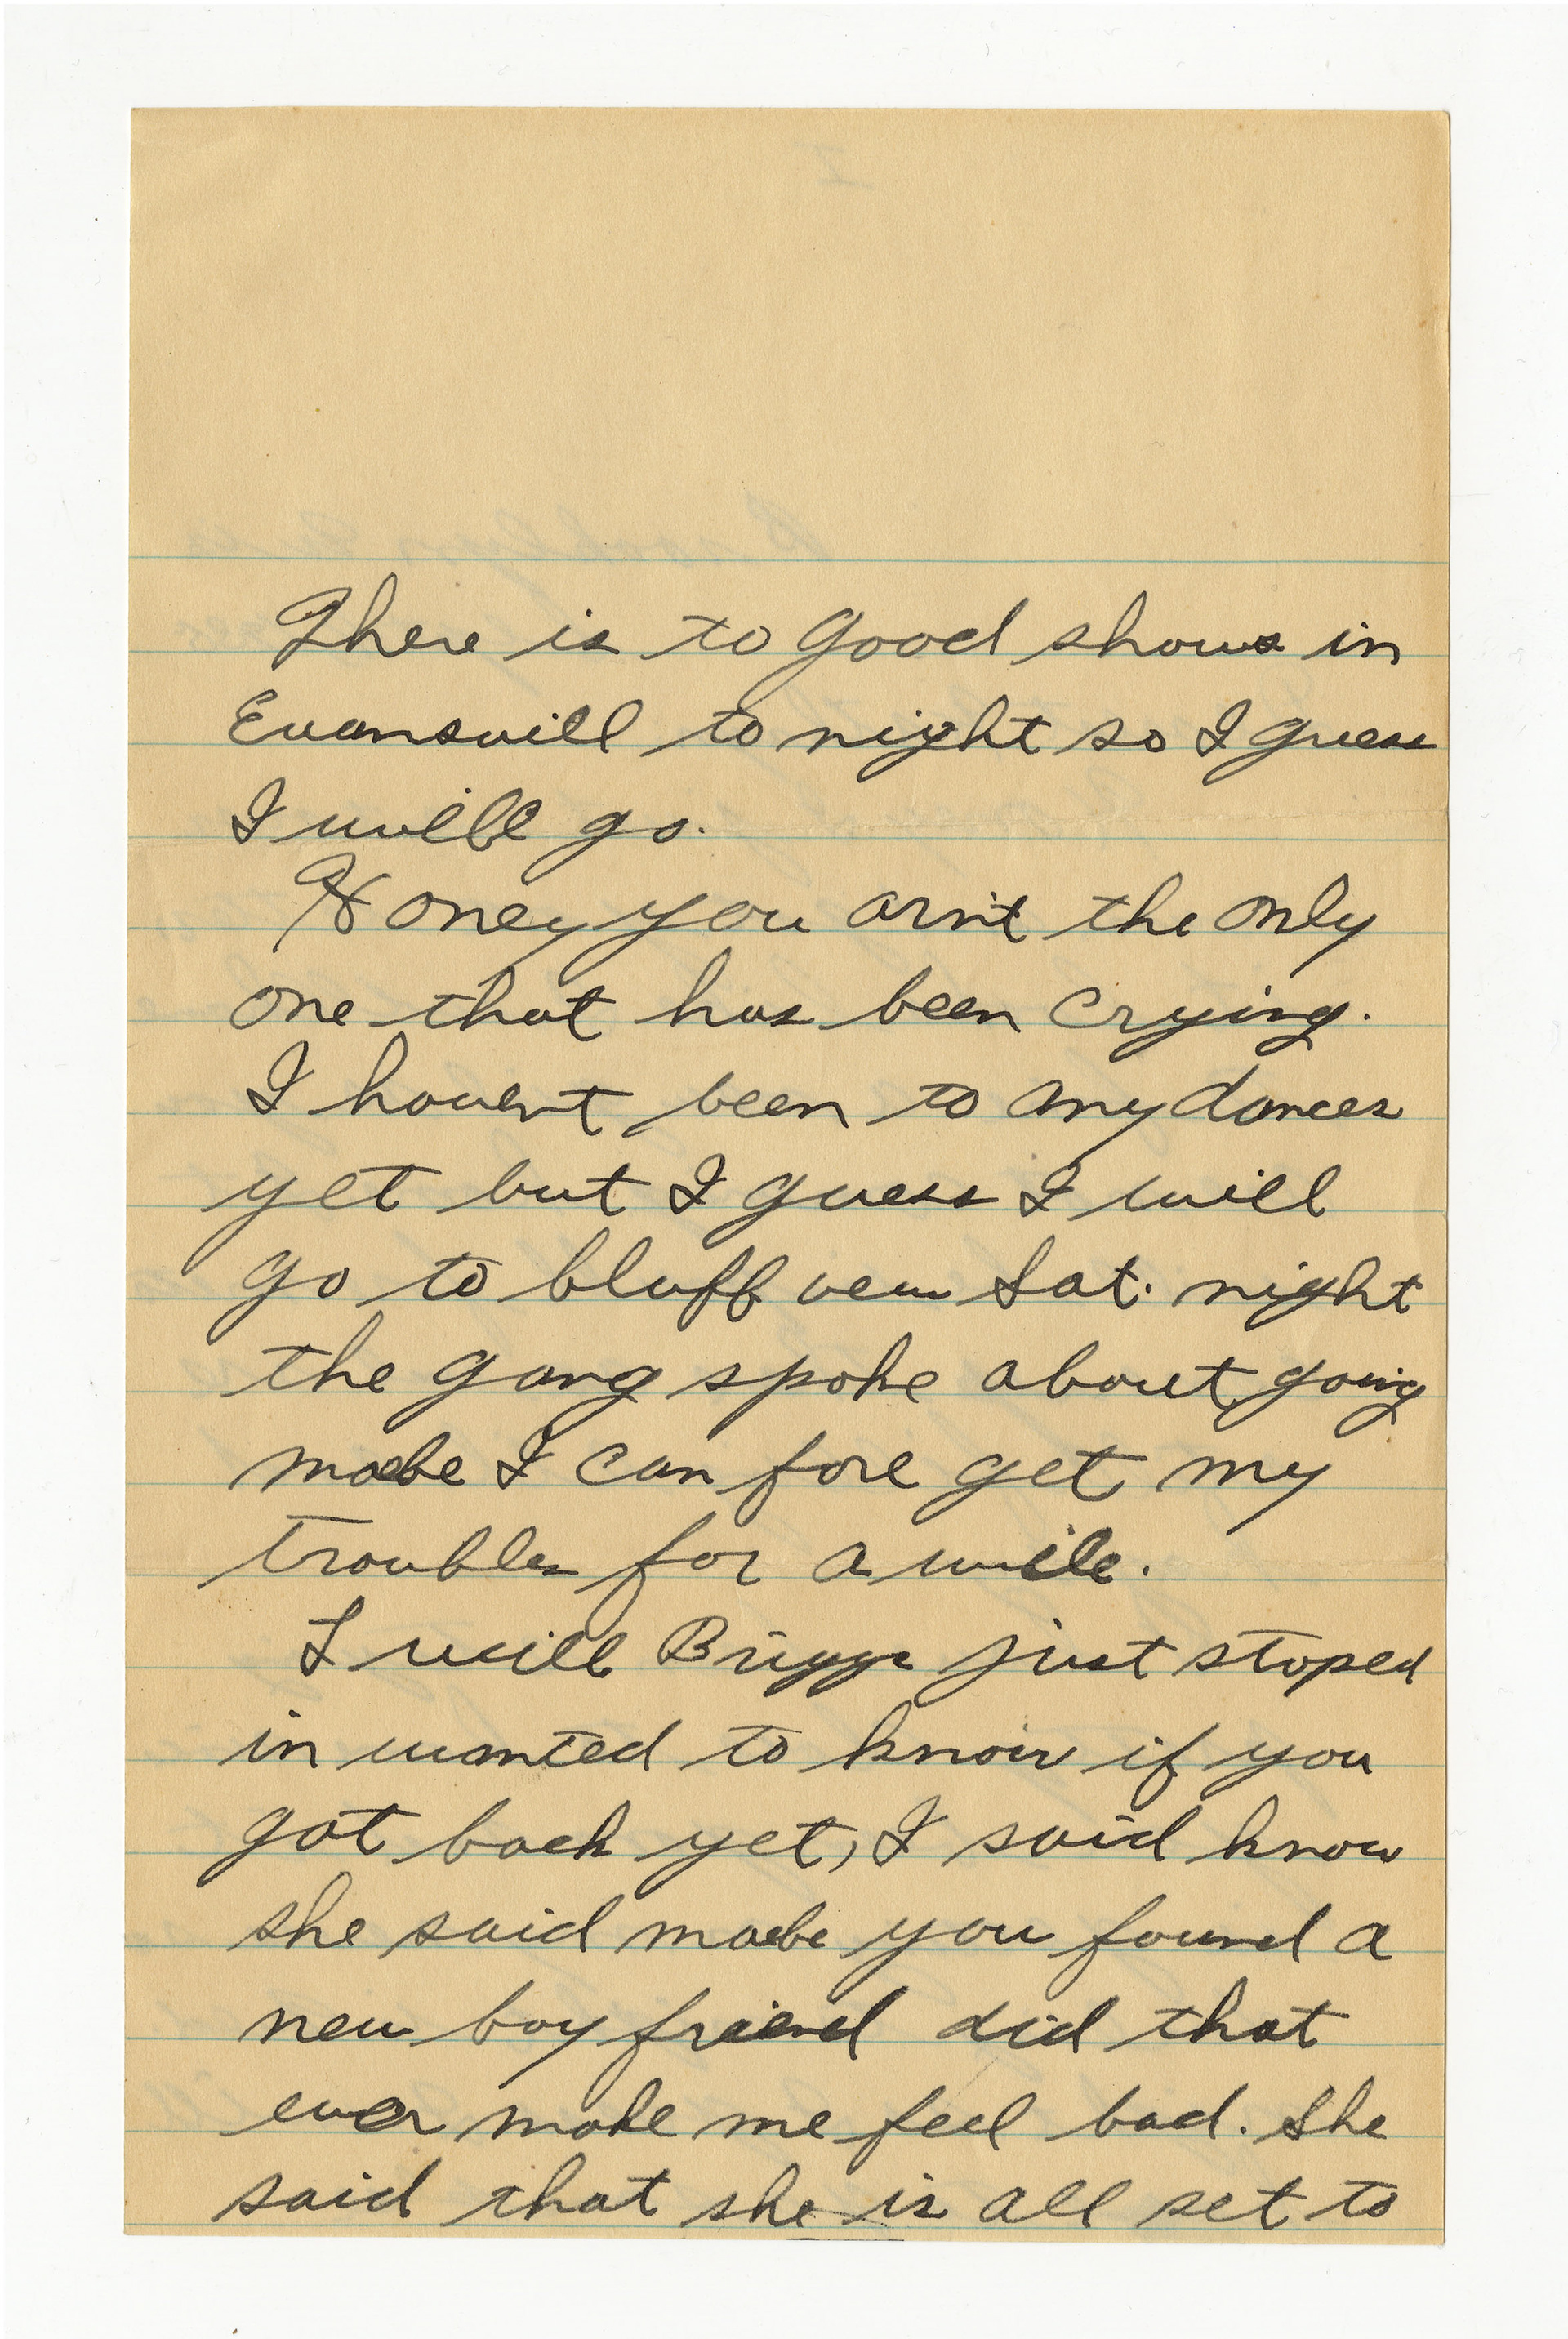 There is to good shows in
Evansvill to night so I guess
I will go.
Honey you arn't the only
one that has been crying.
I havent been to any dances
yet but I guess I will
go to bluff vew Sat. night
the gang spoke about going
maebe I can fore get my
troubles for a wile.
I will Briggs just stoped
in wanted to know if you
got back yet, I said know
she said maebe you found a
new boy friend did that
ever make me feel bad. She
said that she is all set to